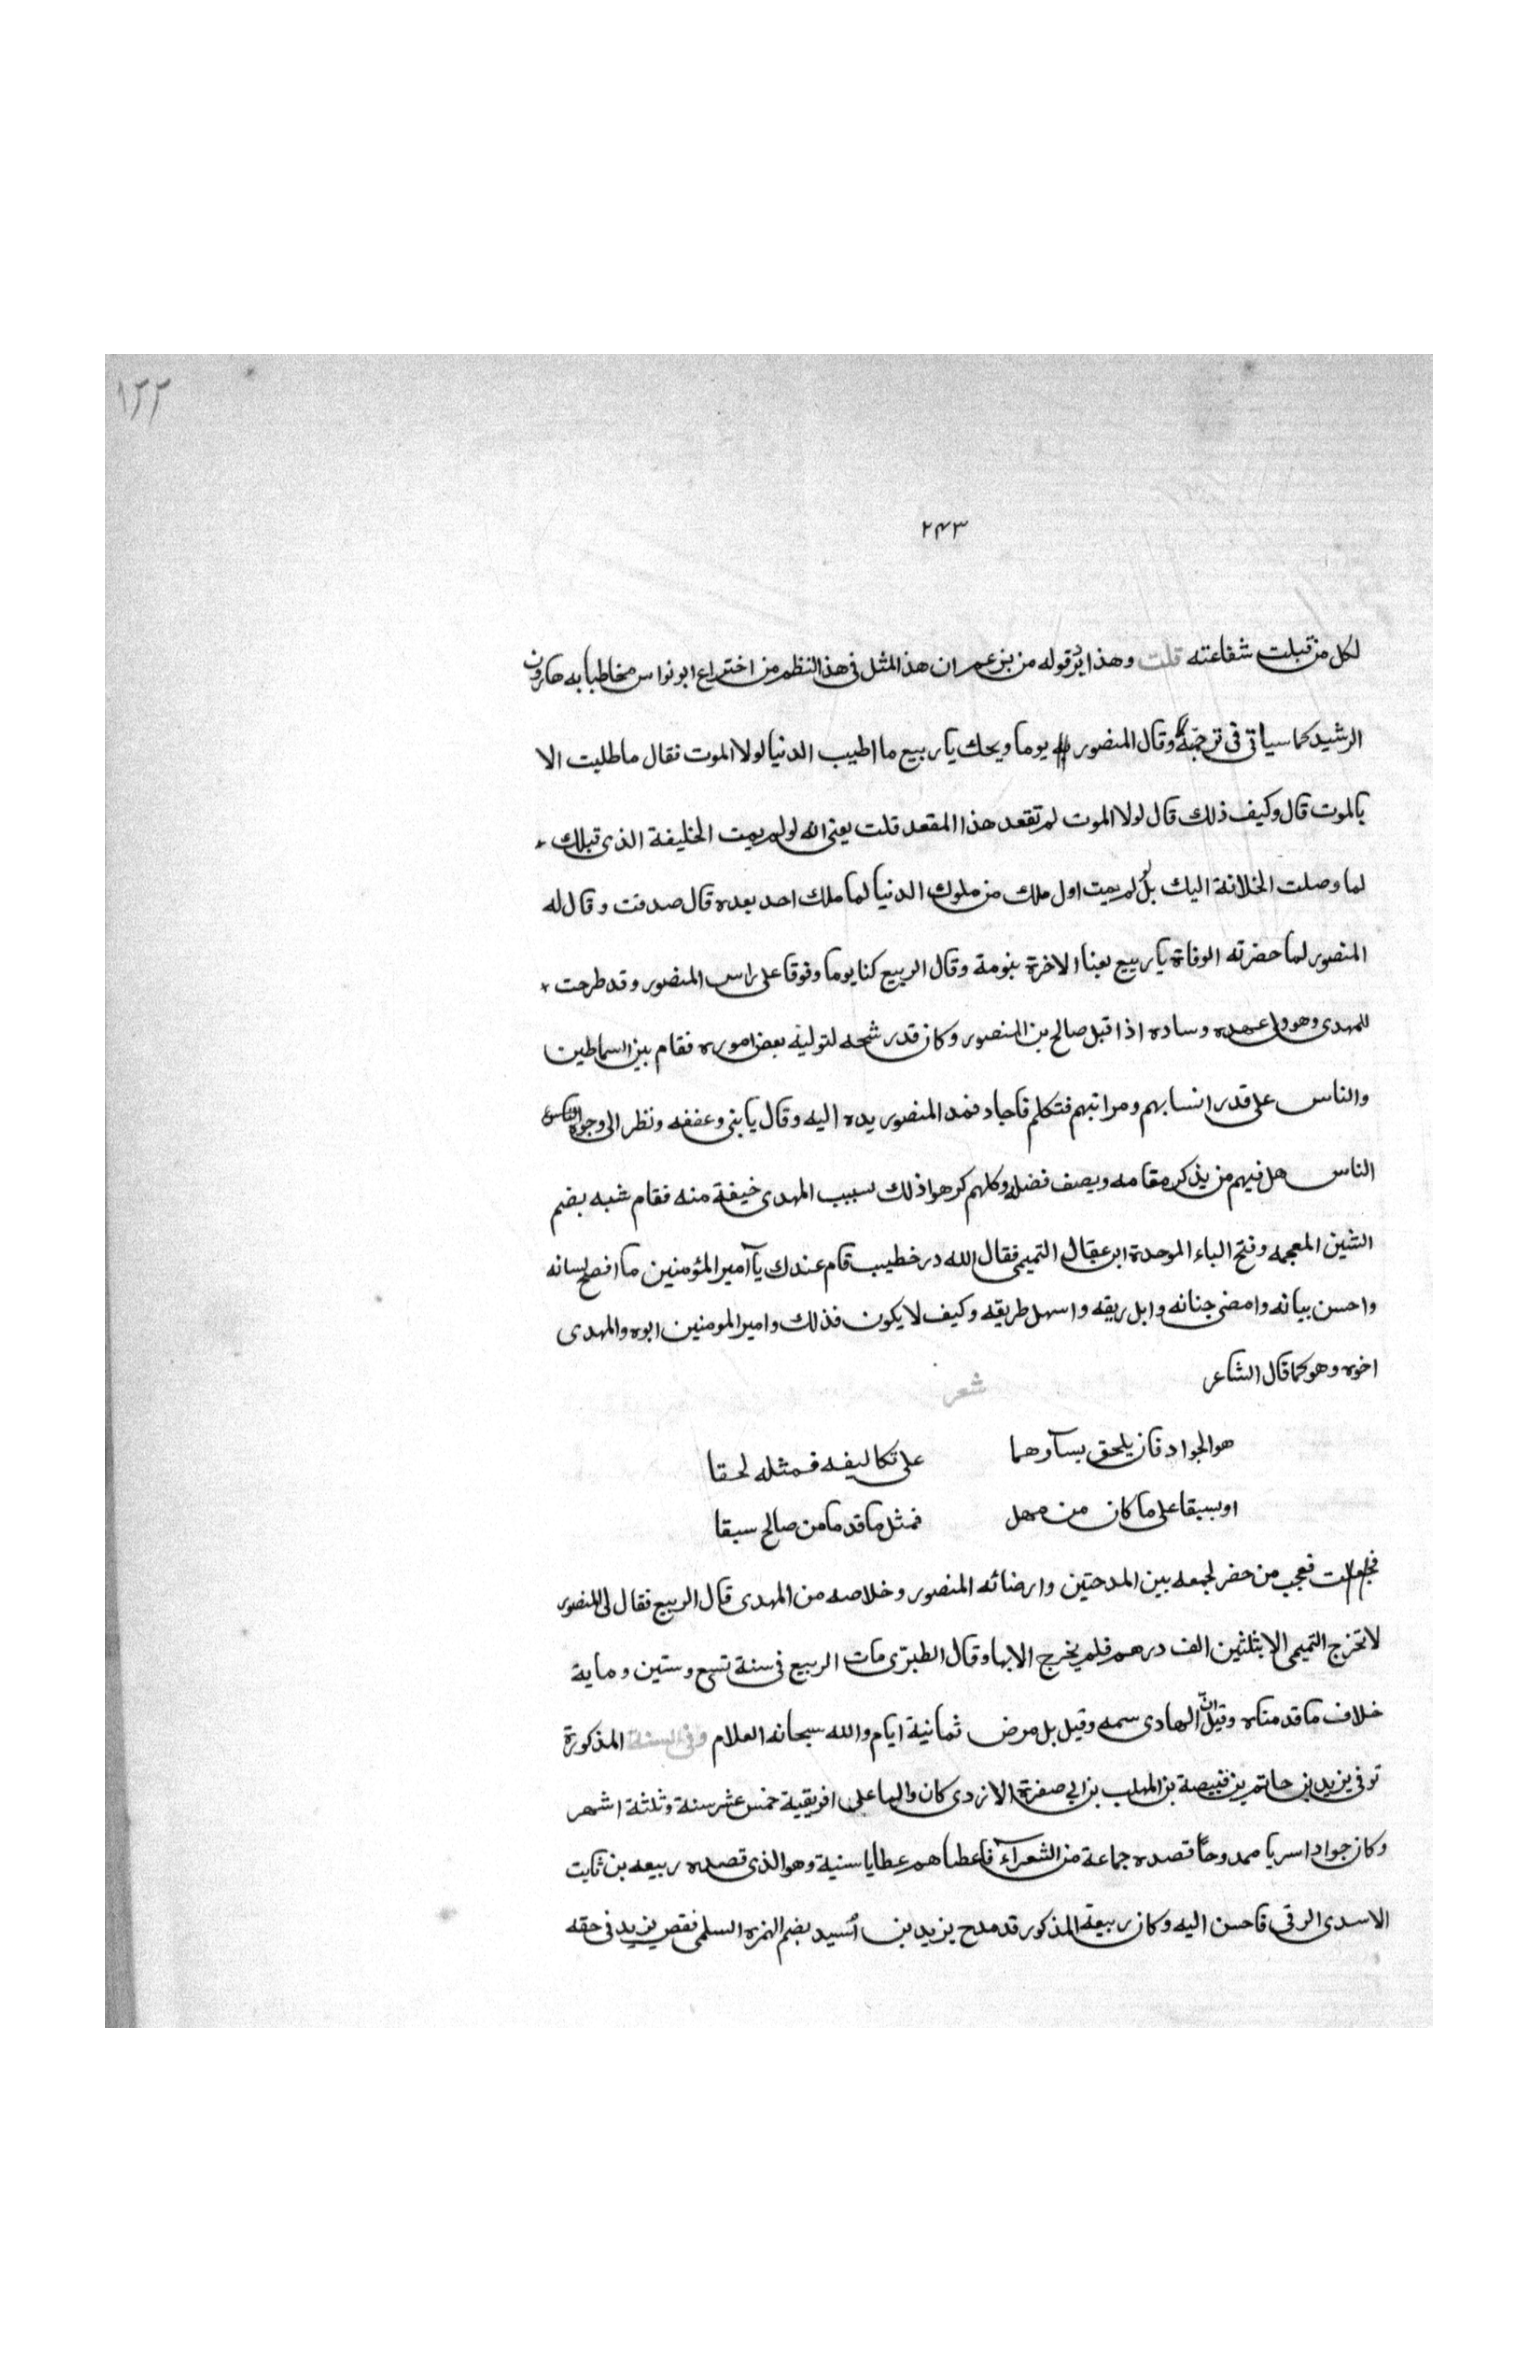 ١٢٢
٢٤٣
لكل من قبلت شفاعته قلت وهذا يرد قوله من يزعم ان هذا المثل فى هذا النظم من اختراع ابو نواس مخاطبا به هارون
الرشيد كما سياتى فى ترجمته وقال المنصور له يوما ويحك يا ربيع ما اطيب الدنيا لولا الموت فقال ما طلبت الا
بالموت قال وكيف ذلك قال لولا الموت لم تقعد هذا المقعد قلت يعنى انه لو لم يمت الخليفة الذى قبلك
لما وصلت الخلافة اليك بل لو لم يمت اول ملك من ملوك الدنيا لما ملك احد بعده قال صدقت وقال له
المنصور لما حضرته الوفاة يا ربيع بعنا الاخرة بنومة وقال الربيع كنا يوما وقوفا على راس المنصور وقد طرحت
للمهدى وهو ولى عهده وساده اذ اقبل صالح بن المنصور وكان قد رشحه لتوليه بعض اموره فقام بين السماطين
والناس على قدر انسابهم ومراتبهم فتكلم فاجاد فمد المنصور يده اليه وقال يا بنى وعففه ونظر الى وجوه
الناس هل فيهم من يذكر مقامه ويصف فضله وكلهم كرهوا ذلك بسبب المهدى خيفة منه فقام شبه بضم
الشين المعجمه وفتح الباء الموحدة ابن عقال التميمى فقال لله در خطيب قام عندك يا آمير المؤمنين ما افصح لسانه
واحسن بيانه وامضى جنانه وابل ريقه واسهل طريقه وكيف لا يكون فذلك وامير المومنين ابوه والمهدى
اخوه وهو كما قال الشاعر شعر
هو الجواد فان يلحق بسآوهما على تكاليفه فمثله لحقا
او يسبقا على ما كان من مهل فمثل ما قدما من صالح سبقا
فعجب من حضر لجمعه بين المدحتين وارضائه المنصور وخلاصه من المهدى قال الربيع فقال لى المنصور
لا تخرج التميمى الا بثلثين الف درهم فلم يخرج الا بها وقال الطبرى مات الربيع فى سنة تسع وستين وماية
خلاف ما قدمناه وقيل ان الهادى سمه وقيل بل مرض ثمانية ايام والله سبحانه العلام وفى السنة المذكورة
توفى يزيد بن حاتم بن قبيصة بن المهلب بن ابى صفرة الازدى كان واليا على افريقية خمس عشر سنة وثلثة اشهر
وكان جوادا سريا ممدوحا قصده جماعة من الشعرآء فاعطاهم عطايا سنية وهو الذى قصده ربيعه بن ثابت
الاسدى الرقى فاحسن اليه وكان ربيعة المذكور قد مدح يزيد بن اُسيد بضم الهمزه السلمى فقصر يزيد فى حقه